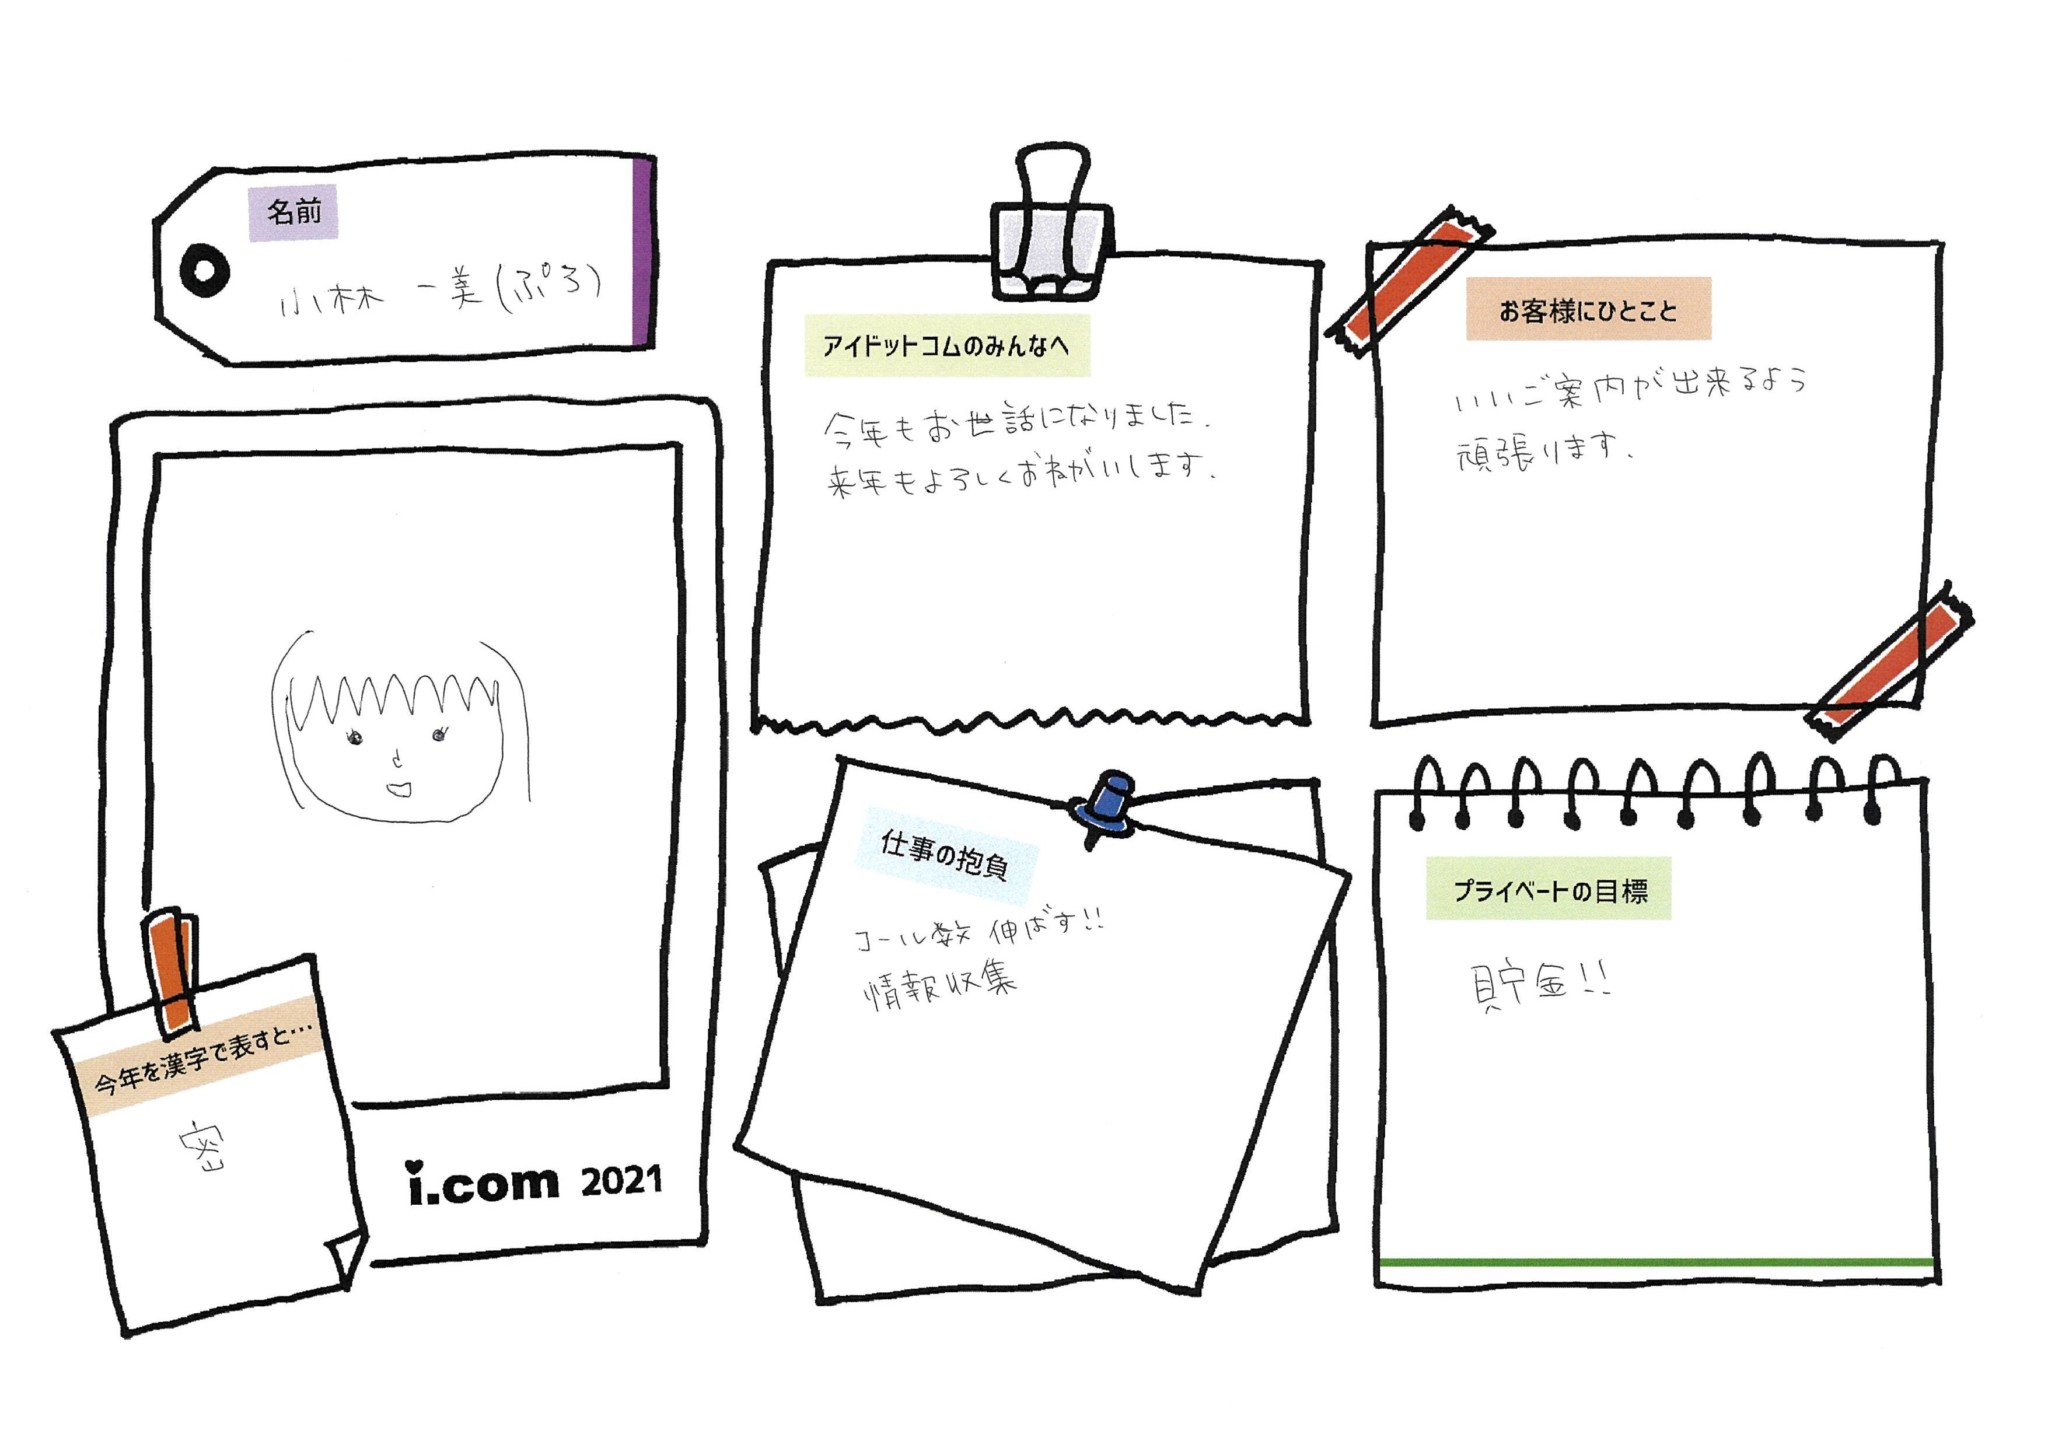 名前
小林 一美(ぷろ)
アイドットコムのみんなへ
今年もお世話になりました.
来年もよろしくおねがいします.
お客様にひとこと
いいご案内が出来るよう
頑張ります.
今年を漢字で表すと…
密
i.com 2021
仕事の抱負
コール数 伸ばす!!
情報収集
プライベートの目標
貯金!!